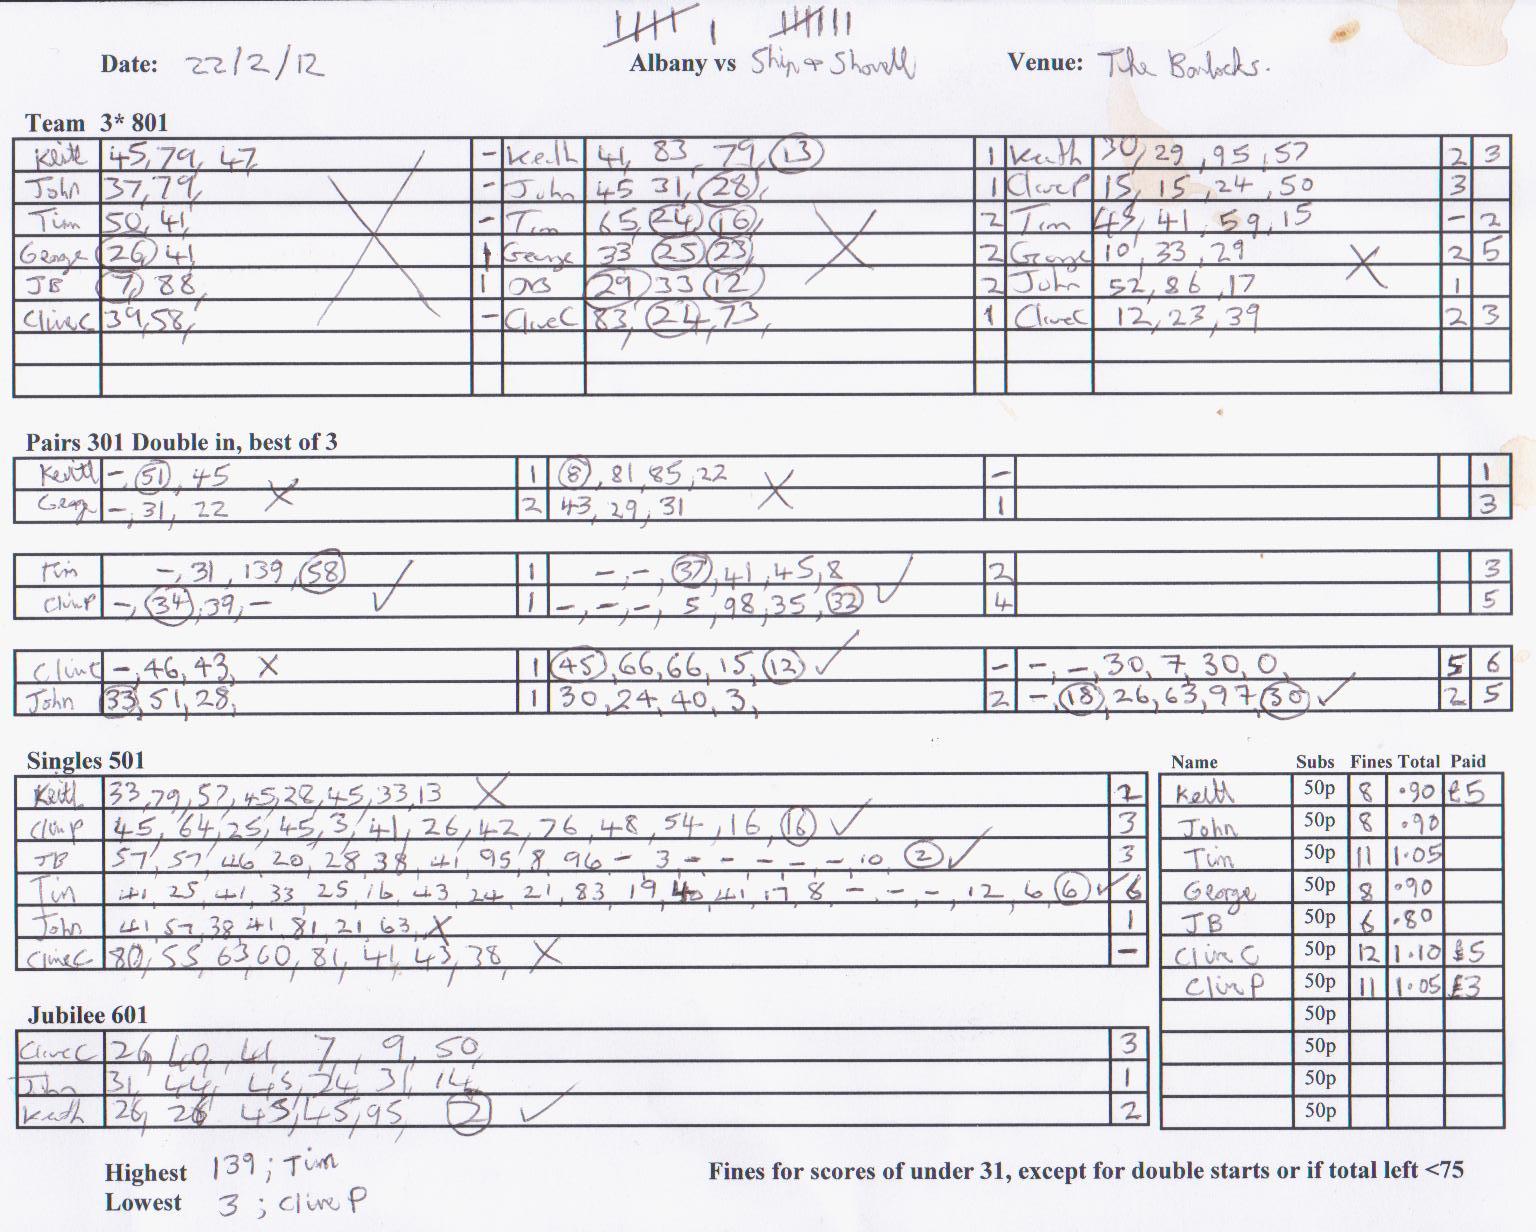 Date: 22/2/12 Albany vs Ship & Shovell Venue: The
Team 3* 801
Keith 45, 79, 47, - Keith 41, 83, 79, 13 1 Keith 30, 29, 95, 57 2 3
John 37, 79, - John 45 31, 28, 1 Clive P 15, 15, 24, 50 3
Tim 50, 41, - Tim 65, 24, 16, 2 Tim 43, 41, 59, 15 - 2
George 26, 41, 1 George 33 25, 23, 2 George 10, 33, 29 2 5
JB 7, 88, 1 29, 33, 12, 2 John 52, 86, 17 1
Clive C 39, 58, - Clive C 83, 24, 73, 1 Clive C 12, 23, 39 2 3
Pairs 301 Double in, best of 3
Keith -, 51, 45 X 1 8, 81, 85, 22 X - 1
George -, 31, 22 2 43, 29, 31 1 3
Tim -, 31, 139, 58 ✓ 1 -, -, 37, 41, 45, 8 ✓ 2 3
Clive P -, 34, 39, - 1 -, -, -, 5, 98, 35, 32 4 5
Clive C -, 46, 43, X 1 45, 66, 66, 15, 12 ✓ - -, -, 30, 7, 30, 0, 5 6
John 33, 51, 28, 1 30, 24, 40, 3, 2 -, 18, 26, 63, 97, 30 ✓ 2 5
Singles 501
Keith 33, 79, 57, 45, 28, 45, 33, 13 X 2
Clive P 45, 64, 25, 45, 3, 41, 26, 42, 76, 48, 54, 16, 16 ✓ 3
JB 57, 57, 46, 20, 28, 38, 41, 95, 8, 96 - 3 - - - - - 10, 2 ✓ 3
Tim 41, 25, 41, 33, 25, 16, 43, 24, 21, 83, 19, 40, 41, 17, 8 - - -, 12, 6, 6 ✓ 6
John 41, 57, 38, 41, 81, 21, 63, X 1
Clive C 80, 55, 63, 60, 81, 41, 43, 38, X -
Name Subs Fines Total Paid
Keith 50p 8 .90 £5
John 50p 8 .90
Tim 50p 11 1.05
George 50p 8 .90
JB 50p 6 .80
Clive C 50p 12 1.10 £5
Clive P 50p 11 1.05 £3
50p
50p
50p
50p
Jubilee 601
Clive C 26, 40, 41, 7, 9, 50, 3
John 31, 44, 45, 24, 31, 14, 1
Keith 26, 26 45, 45, 95, 2 ✓ 2
Highest 139; Tim
Lowest 3; Clive P
Fines for scores of under 31, except for double starts or if total left <75